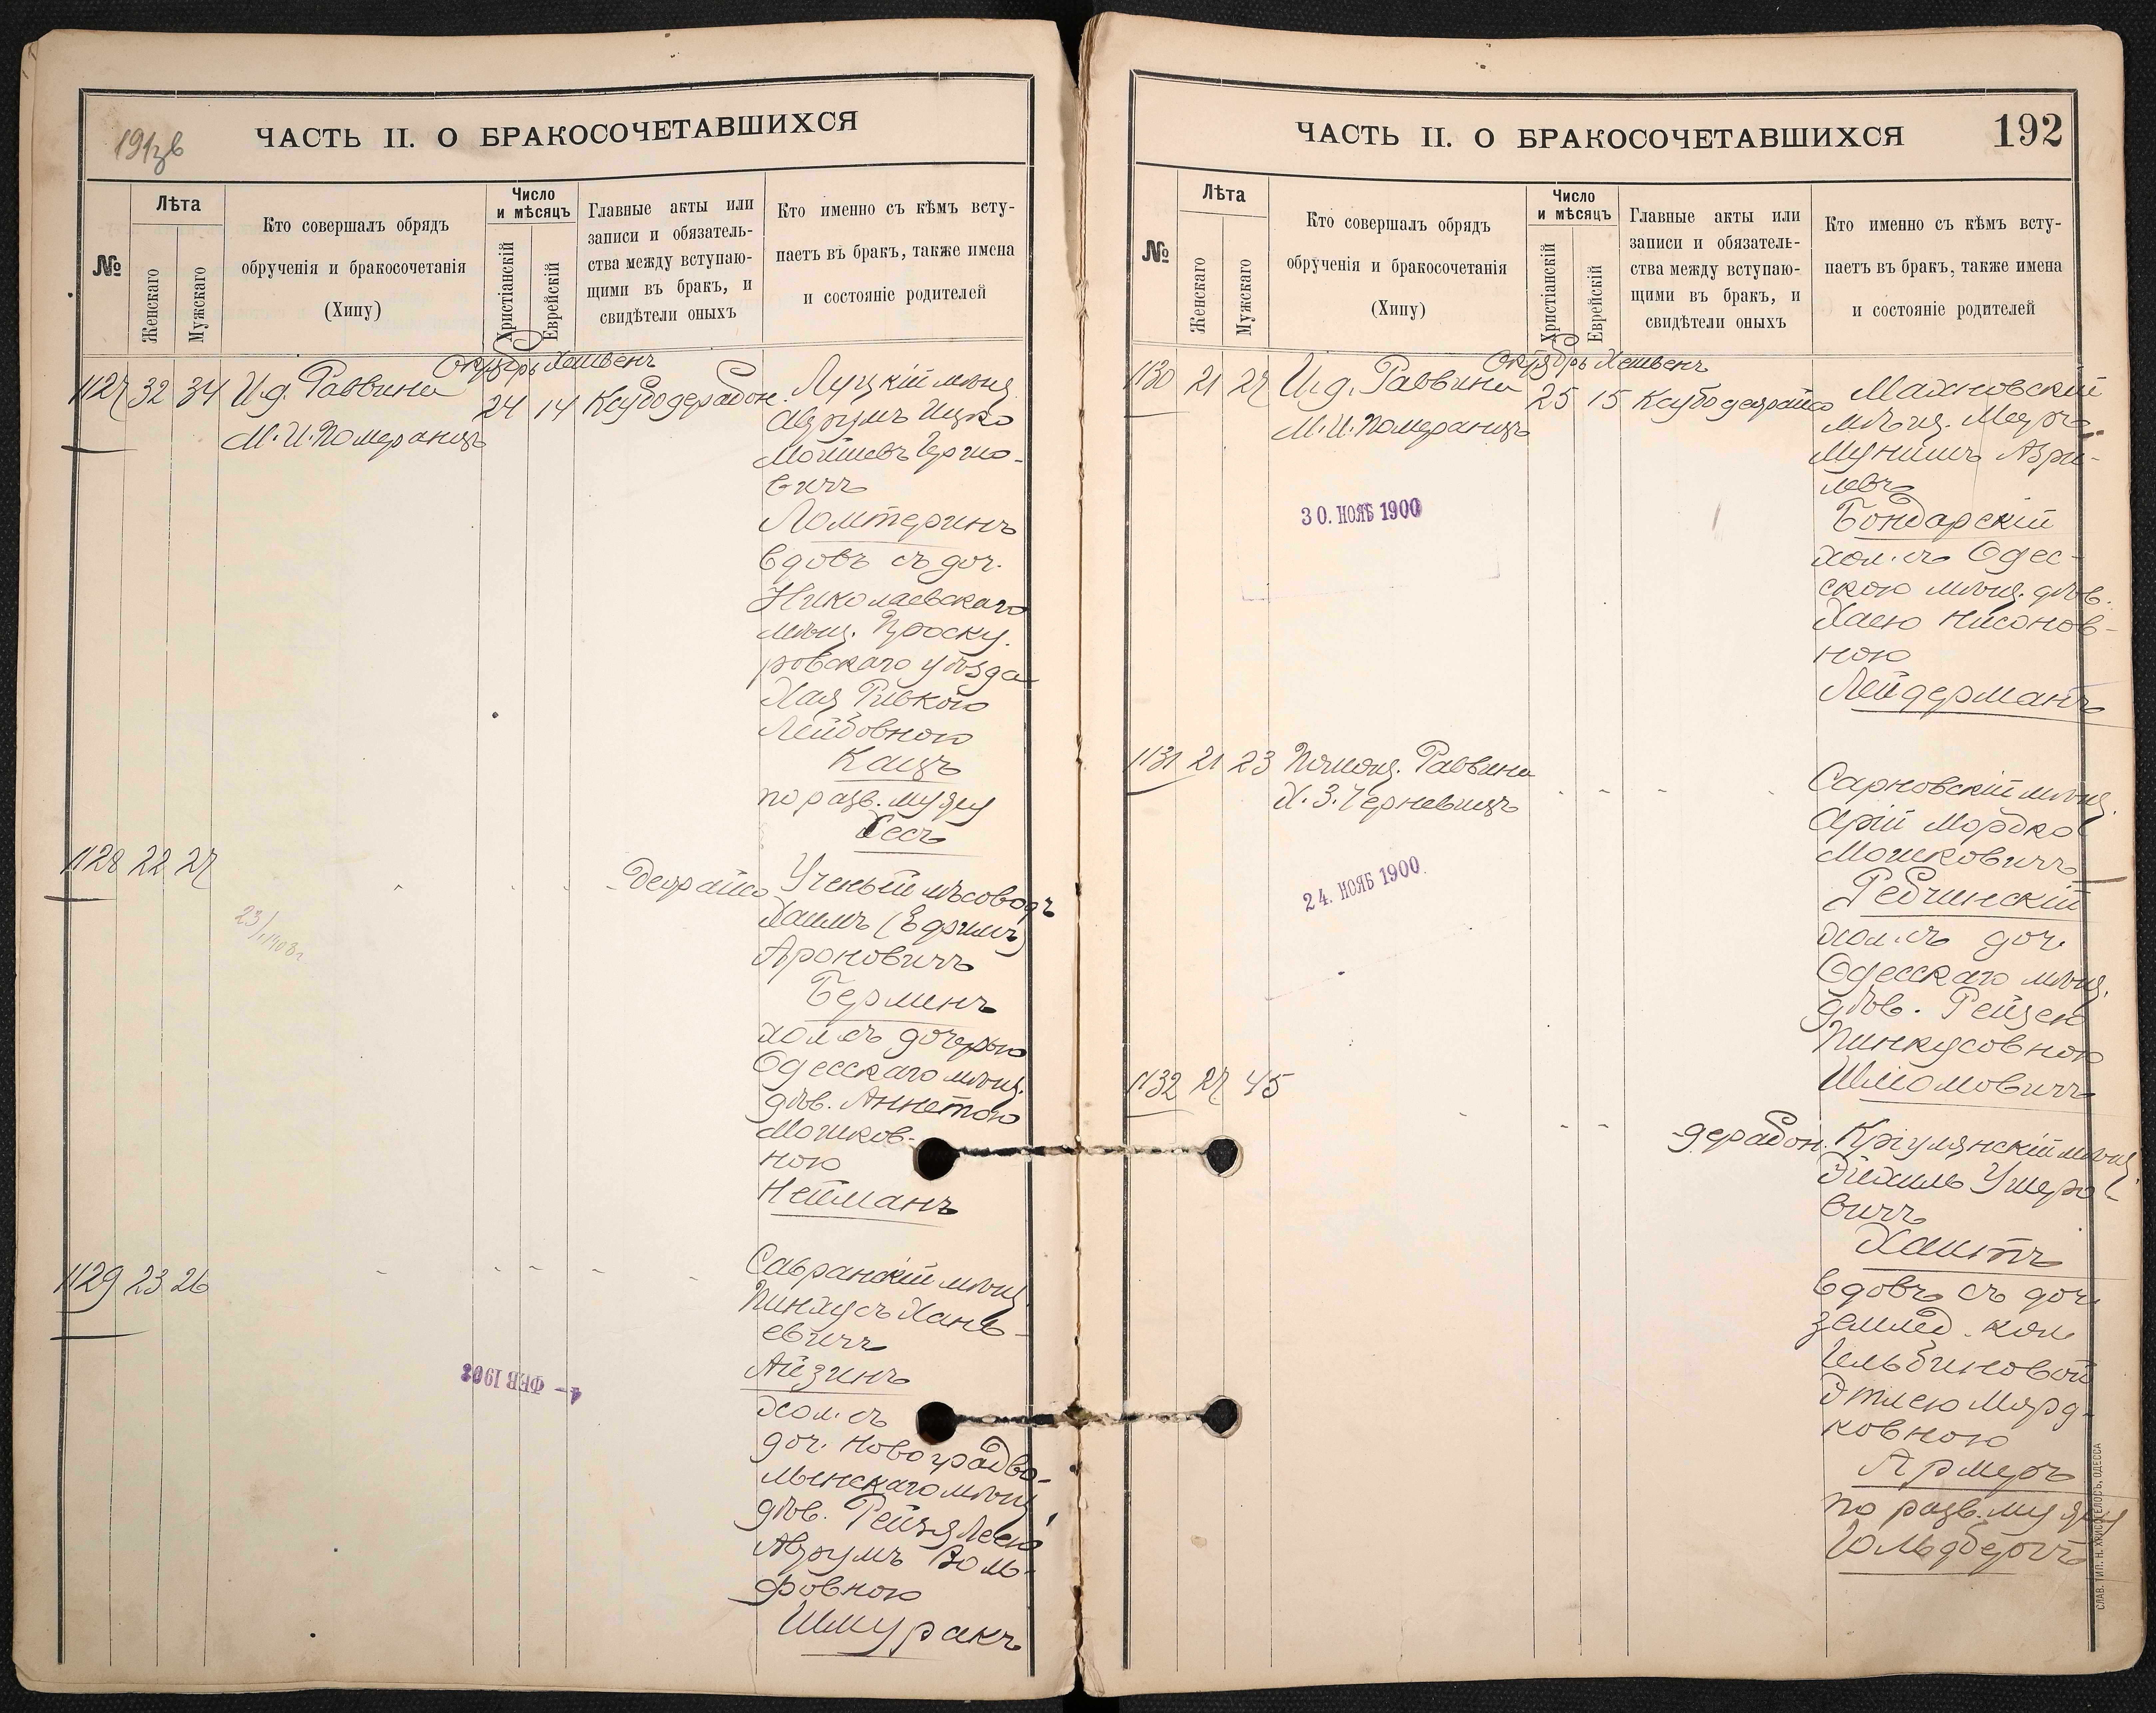 191 зв
ЧАСТЬ II. О БРАКОСОЧЕТАВШИХСЯ
№
Лѣта
Женскаго
Мужскаго
Кто совершалъ обрядъ
обрученія и бракосочетанія
(Хипу)
Число
и мѣсяцъ
Христіанскій
Еврейскій
Главные акты или
записи и обязатель-
ства между вступаю-
щими въ бракъ, и
свидѣтели оныхъ
Кто именно съ кѣмъ всту-
паетъ въ бракъ, также имена
и состояніе родителей
Октябрь Хешвенъ
1127 32 34 И.д. Раввина
М.И. Померанцъ
24 14 Ксубо дерабон.
Луцкій мѣщ.
Аврумъ Ицко
Мойшевъ Гершо-
вичъ
Ломтеринъ
вдовъ съ доч.
Николаевскаго
мѣщ. Проску-
ровскаго уѣзда
Хая Ривкою
Лейбовною
Кацъ
по разв. мужу
Хесъ
1128 22 27
23/1 1908 г.
Деирайсо
Ученый лѣсоводъ
Хаимъ (Ефримъ)
Ароновичъ
Берминъ
хол. съ дочерью
Одесскаго мѣщ.
дѣв. Аннетою
Мошков-
ною
Нейманъ
1129 23 26
4 - ФЕВ 1902
Савранскій мѣщ.
Пинхусъ Хань-
евичъ
Айзинъ
хол. съ
доч. Новоградво-
лынскаго мѣщ.
дѣв. Рейзя Леею
Аврумъ Воль-
фовною
Шмуракъ
ЧАСТЬ II. О БРАКОСОЧЕТАВШИХСЯ
192
№
Лѣта
Женскаго
Мужскаго
Кто совершалъ обрядъ
обрученія и бракосочетанія
(Хипу)
Число
и мѣсяцъ
Христіанскій
Еврейскій
Главные акты или
записи и обязатель-
ства между вступаю-
щими въ бракъ, и
свидѣтели оныхъ
Кто именно съ кѣмъ всту-
паетъ въ бракъ, также имена
и состояніе родителей
Октябрь Хешвенъ
1130 21 27 И.д. Раввина
М.И. Померанцъ
25 15 Ксубо деирайсо
30. НОЯБ 1900
Махновскій
мѣщ. Мееръ
Мунишъ Азри-
левъ
Бондарскій
хол. съ Одес-
скою мѣщ. дѣв.
Хаею Нисонов-
ною
Лейдерманъ
1131 21 23 Помощ. Раввина
Х.З. Черневицъ
24. НОЯБ 1900
Сарновскій мѣщ.
Арій Мордко
Мошковичъ
Ребчинскій
хол. съ доч.
Одесскаго мѣщ.
дѣв. Рейзею
Пинкусовною
Шломовичъ
1132 27 45
-дерабон.
Кріулянскій мѣщ.
Эйхиль Ушеро-
вичъ
Хаитъ
вдовъ съ доч.
землед. кол.
Ильбиновой
Этлею Морд-
ковною
Армеръ
по разв. мужу
Гольдбергъ
СЛАВ. ТИП. Н. ХРИСОГЕЛОСЪ, ОДЕССА